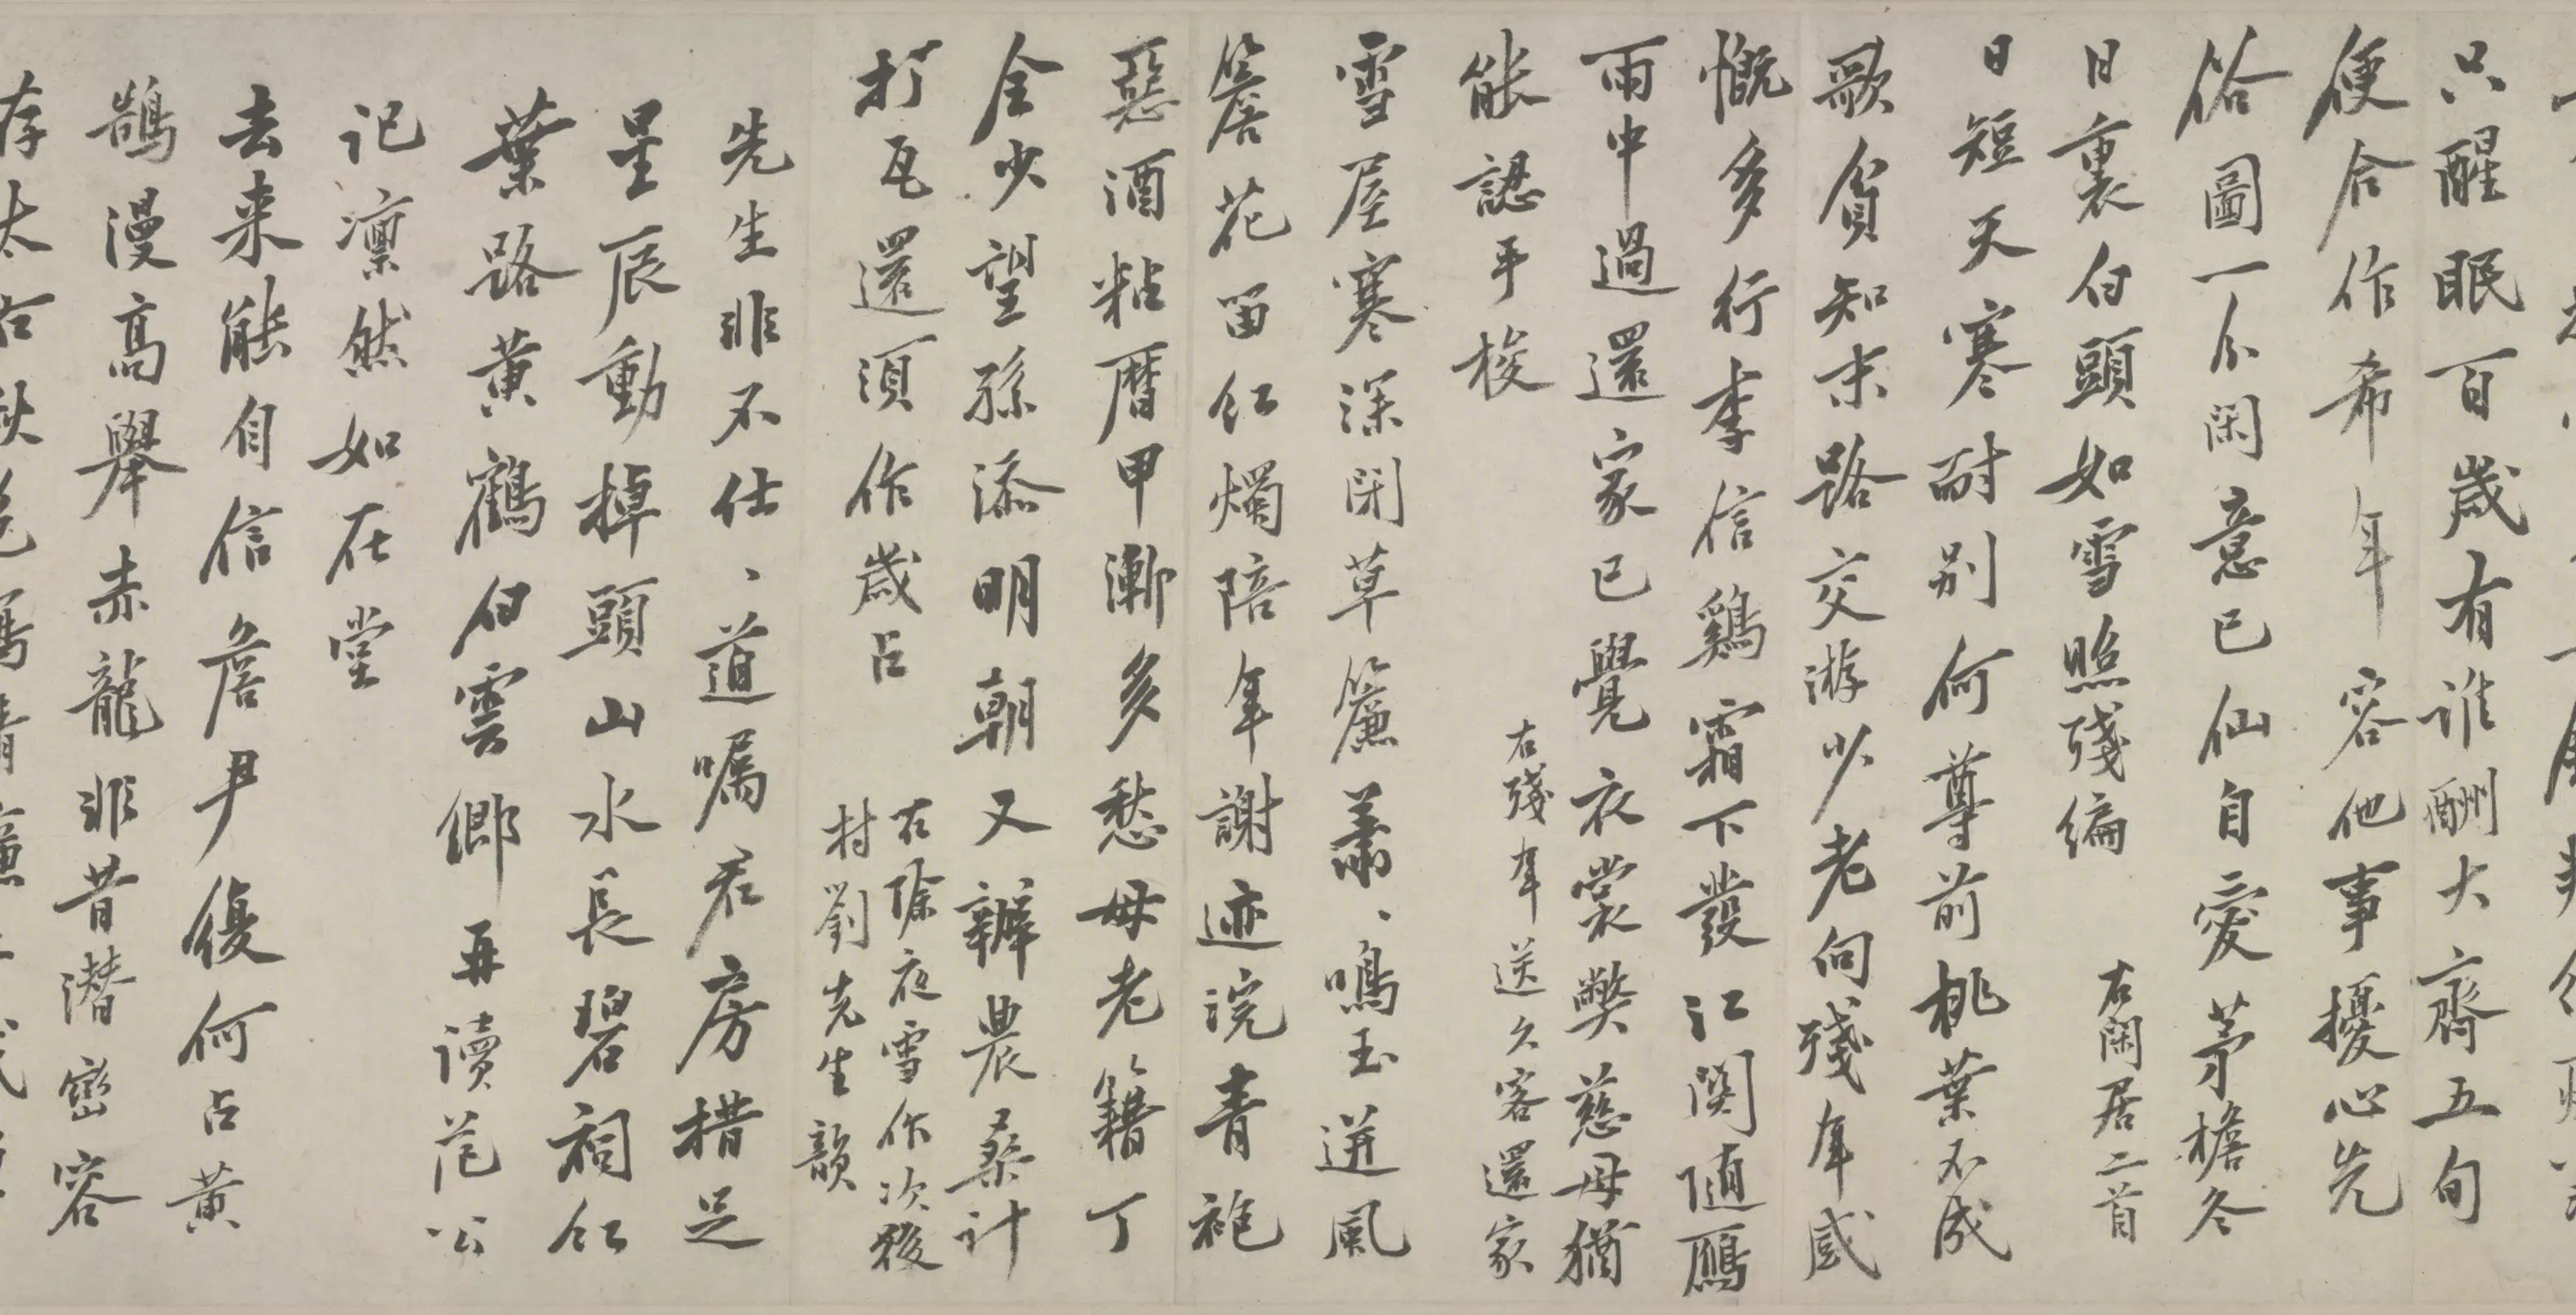 只醒眠百歲有谁酬大齊五旬
便合作希年容他事擾心先
俗圖一分閑意已仙自愛茅檐冬
日裏白頭如雪照殘编
右閑居二首
日短天寒耐别何尊前桃葉不成
歌貧知末路交游少老向殘年感
慨多行李信鷄霜下發江関随鴈
雨中過還家已覺衣裳獘慈母猶
能認手梭
右殘年送久客還家
雪屋寒深閉草簾蕭、鳴玉迸風
簷花留红燭陪年謝迹浣青袍
惡酒粘曆甲漸多愁母老籍丁
全少望孫添明朝又辦農桑計
打瓦還須作歲占
右除夜雪作次後
村劉先生韻
先生非不仕、道嘱君房措足
星辰動掉頭山水長碧祠红
葉路黄鶴白雲鄉再讀范公
記凛然如在堂
去来能自信詹尹復何占黄
鵠漫高舉赤龍非昔潜巒容